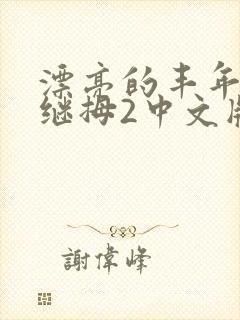 漂亮的丰年
继拇2中文版
謝偉峰